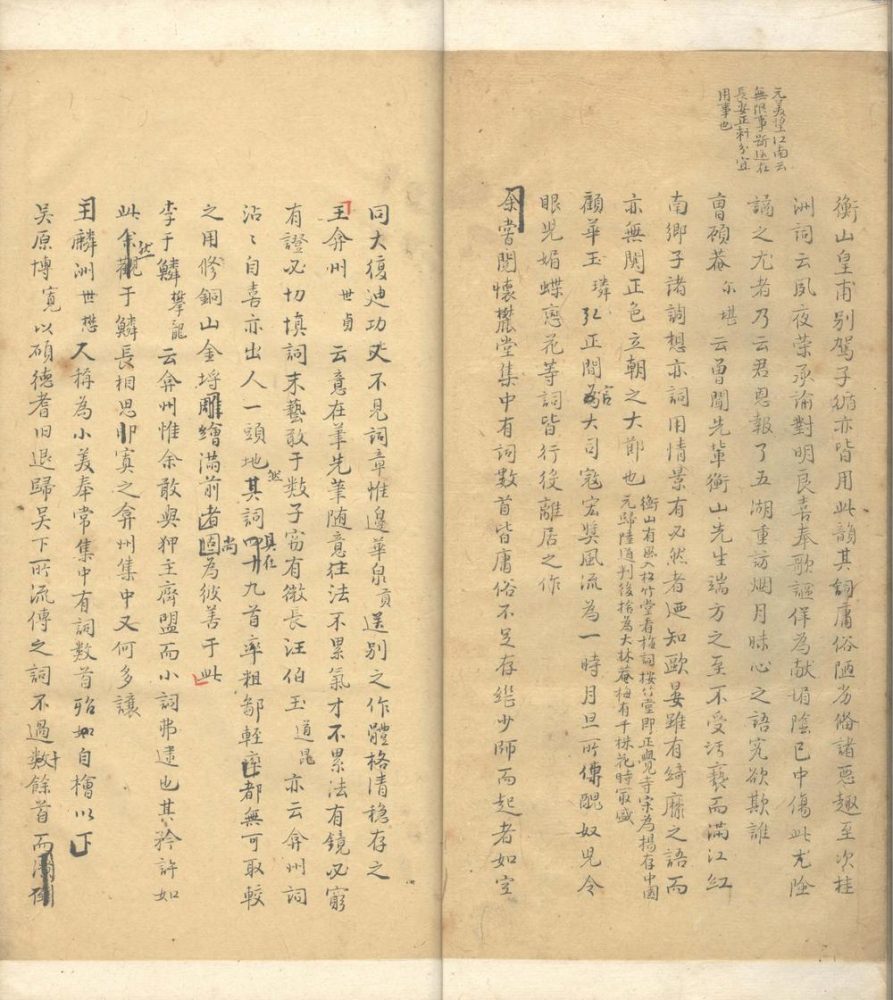 元美望江南云
無限事斷送在
長安正刺分宜
用事也
衡山皇甫別駕子循亦皆用此韻其詞庸俗陋劣備諸惡趣至次桂
洲詞云夙夜榮承論對明良喜奉歌謳佯為献媚陰已中傷此尤險
譎之尤者乃云君恩報了五湖重訪烟月昧心之語寃欲欺誰
曹碩菴尔堪云曾聞先輩衡山先生端方之至不受汚褻而滿江紅
南鄉子諸調想亦詞用情景有必然者迺知歐晏雖有綺靡之語而
亦無関正色立朝之大節也衡山有風入松竹堂看梅詞按竹堂即正覺寺宗為楊存中園
元歸陸通判後捨為大林菴梅有千株花時最盛
顧華玉璘弘正間官為大司寇宏奬風流為一時月旦所傳醌奴兒令
眼兒媚蝶戀花等詞皆行後離居之作
余嘗閱懷麓堂集中有詞數首皆庸俗不足存繼少師而起者如空
同大復迪功丈不見詞章惟邊華泉貢送別之作體格清穩存之
王弇州世貞云意在筆先筆随意往法不累氣才不累法有鏡必窮
有證必切填詞末藝敢于數子窃有微長汪伯玉道昆亦云弇州詞
沾沾自喜亦出人一頭地然其詞具在四十九首率粗鄙輕率都無可取較
之用修銅山金埒雕繪滿前者尚固為彼善于此
李于鱗攀龍云弇州惟余敢與狎主齊盟而小詞弗逮也其矜許如
此然余觀于鱗長相思卯寞之弇州集中又何多讓
王麟洲世懋人稱為小美奉常集中有詞數首殆如自檜以下
吳原博寬以碩德耆旧退歸吳下所流傳之詞不過數十餘首而瀾倒